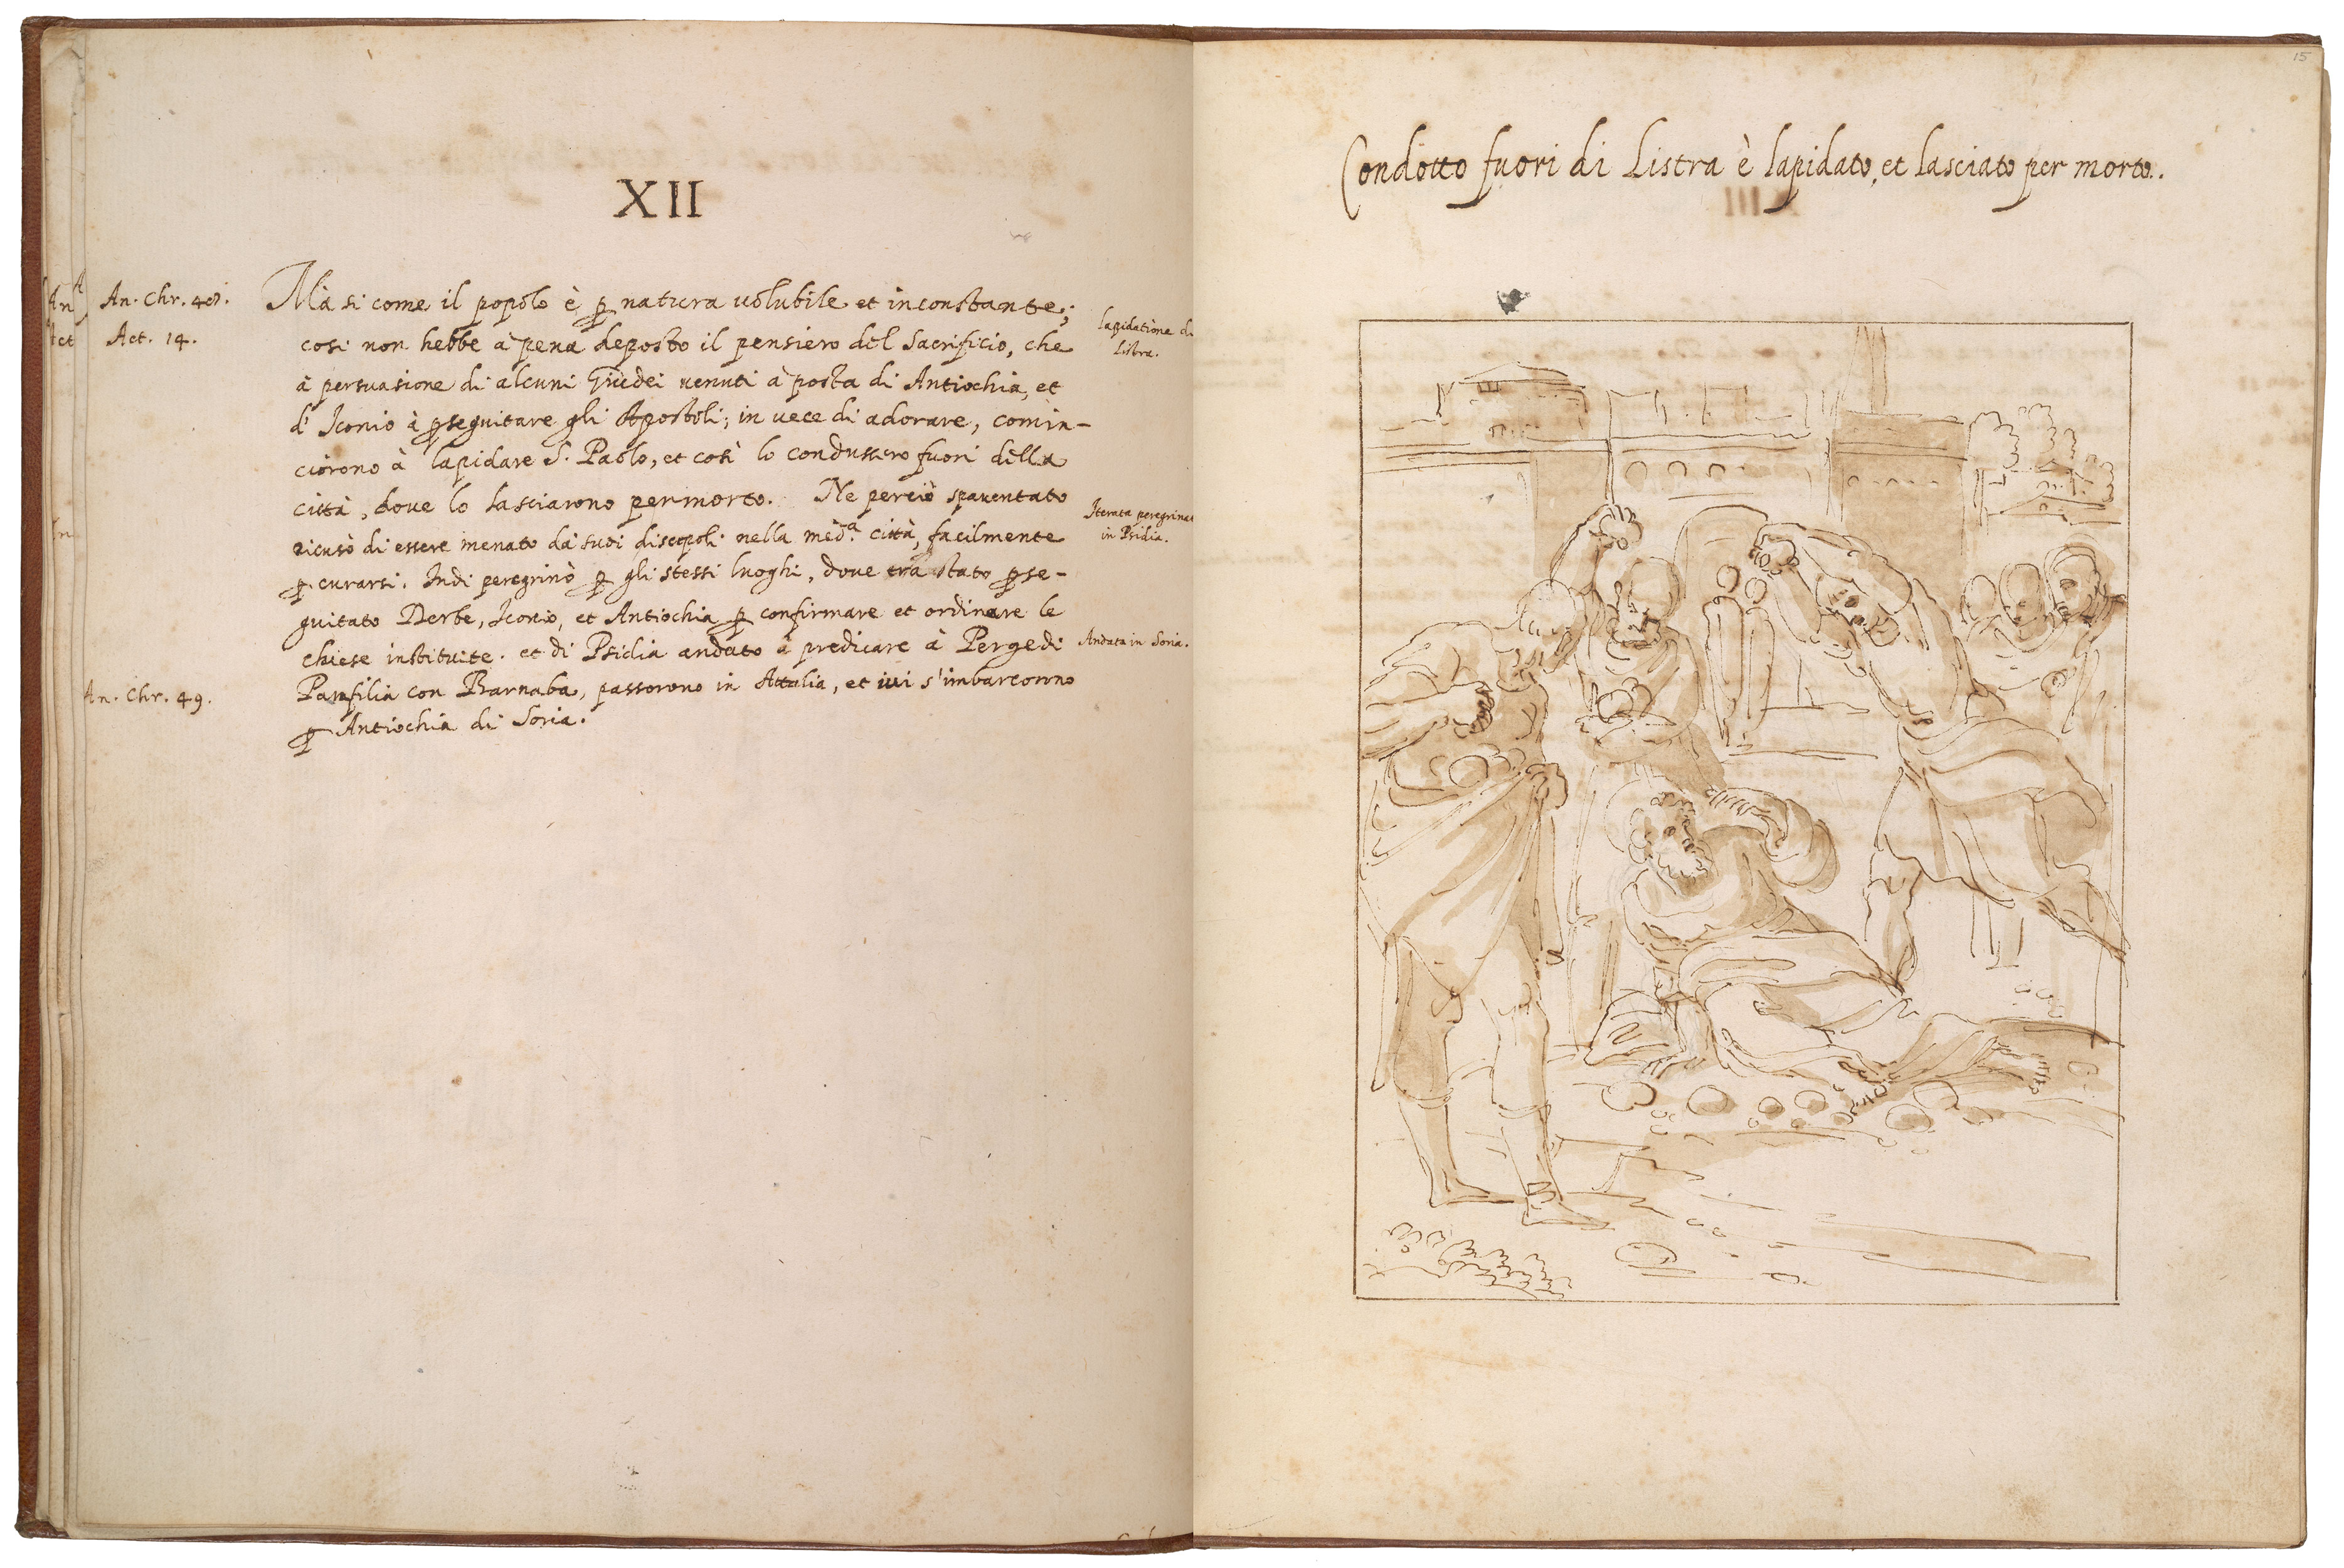 XII
An. Chr. 48.
Act. 14.
Mà si come il popolo è ꝑ natura volubile et inconstante;
cosi non hebbe à pena deposto il pensiero del Sacrificio, che
à persuasione di alcuni Giudei venuti à posta di Antiochia, et
d' Iconio à ꝑseguitare gli Apostoli; in vece di adorare, comin-
ciorono à lapidare S. Paolo, et così lo condussero fuori della
città, dove lo lasciarono per morto. Ne perciò spaventato
ricusò di essere menato da suoi discepoli nella med.a città, facilmente
ꝑ curarsi. Indi peregrinò ꝑ gli stessi luoghi, dove era stato ꝑse-
guitato Derbe, Iconio, et Antiochia ꝑ confirmare et ordinare le
chiese instituite. et di Psidia andato à predicare à Perge di
Panfilia con Barnaba, passorono in Attalia, et ivi s'imbarcorono
ꝑ Antiochia di Soria.
An. Chr. 49.
lapidatione di
Listra.
Iterata peregrinat
in Psidia.
Andata in Soria.
An
Act
15
Condotto fuori di Listra è lapidato, et lasciato per morto.